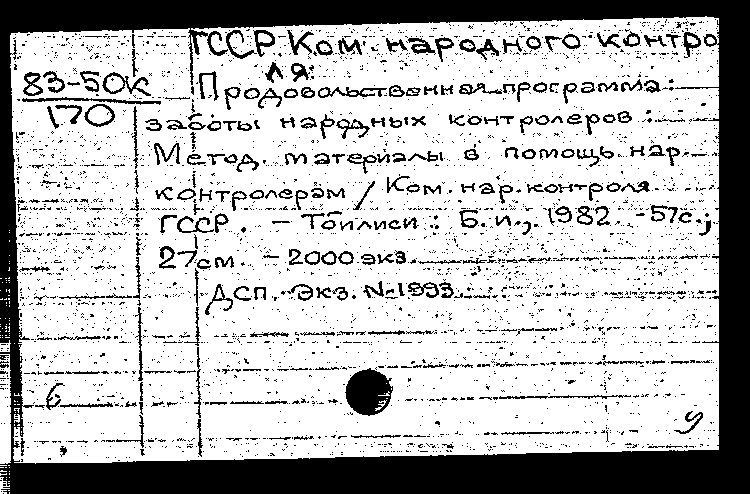 ГССР. Ком. народного контро
ля.
83-50к
170
Продовольственная программа:
заботы народных контролеров:
Метод. материалы в помощь нар.
контролерам / Ком. нар. контроля
ГССР. - Тбилиси: Б. и., 1982. - 57с.;
27см. - 2000 экз.
ДСП. Экз. N-1993.
6
у